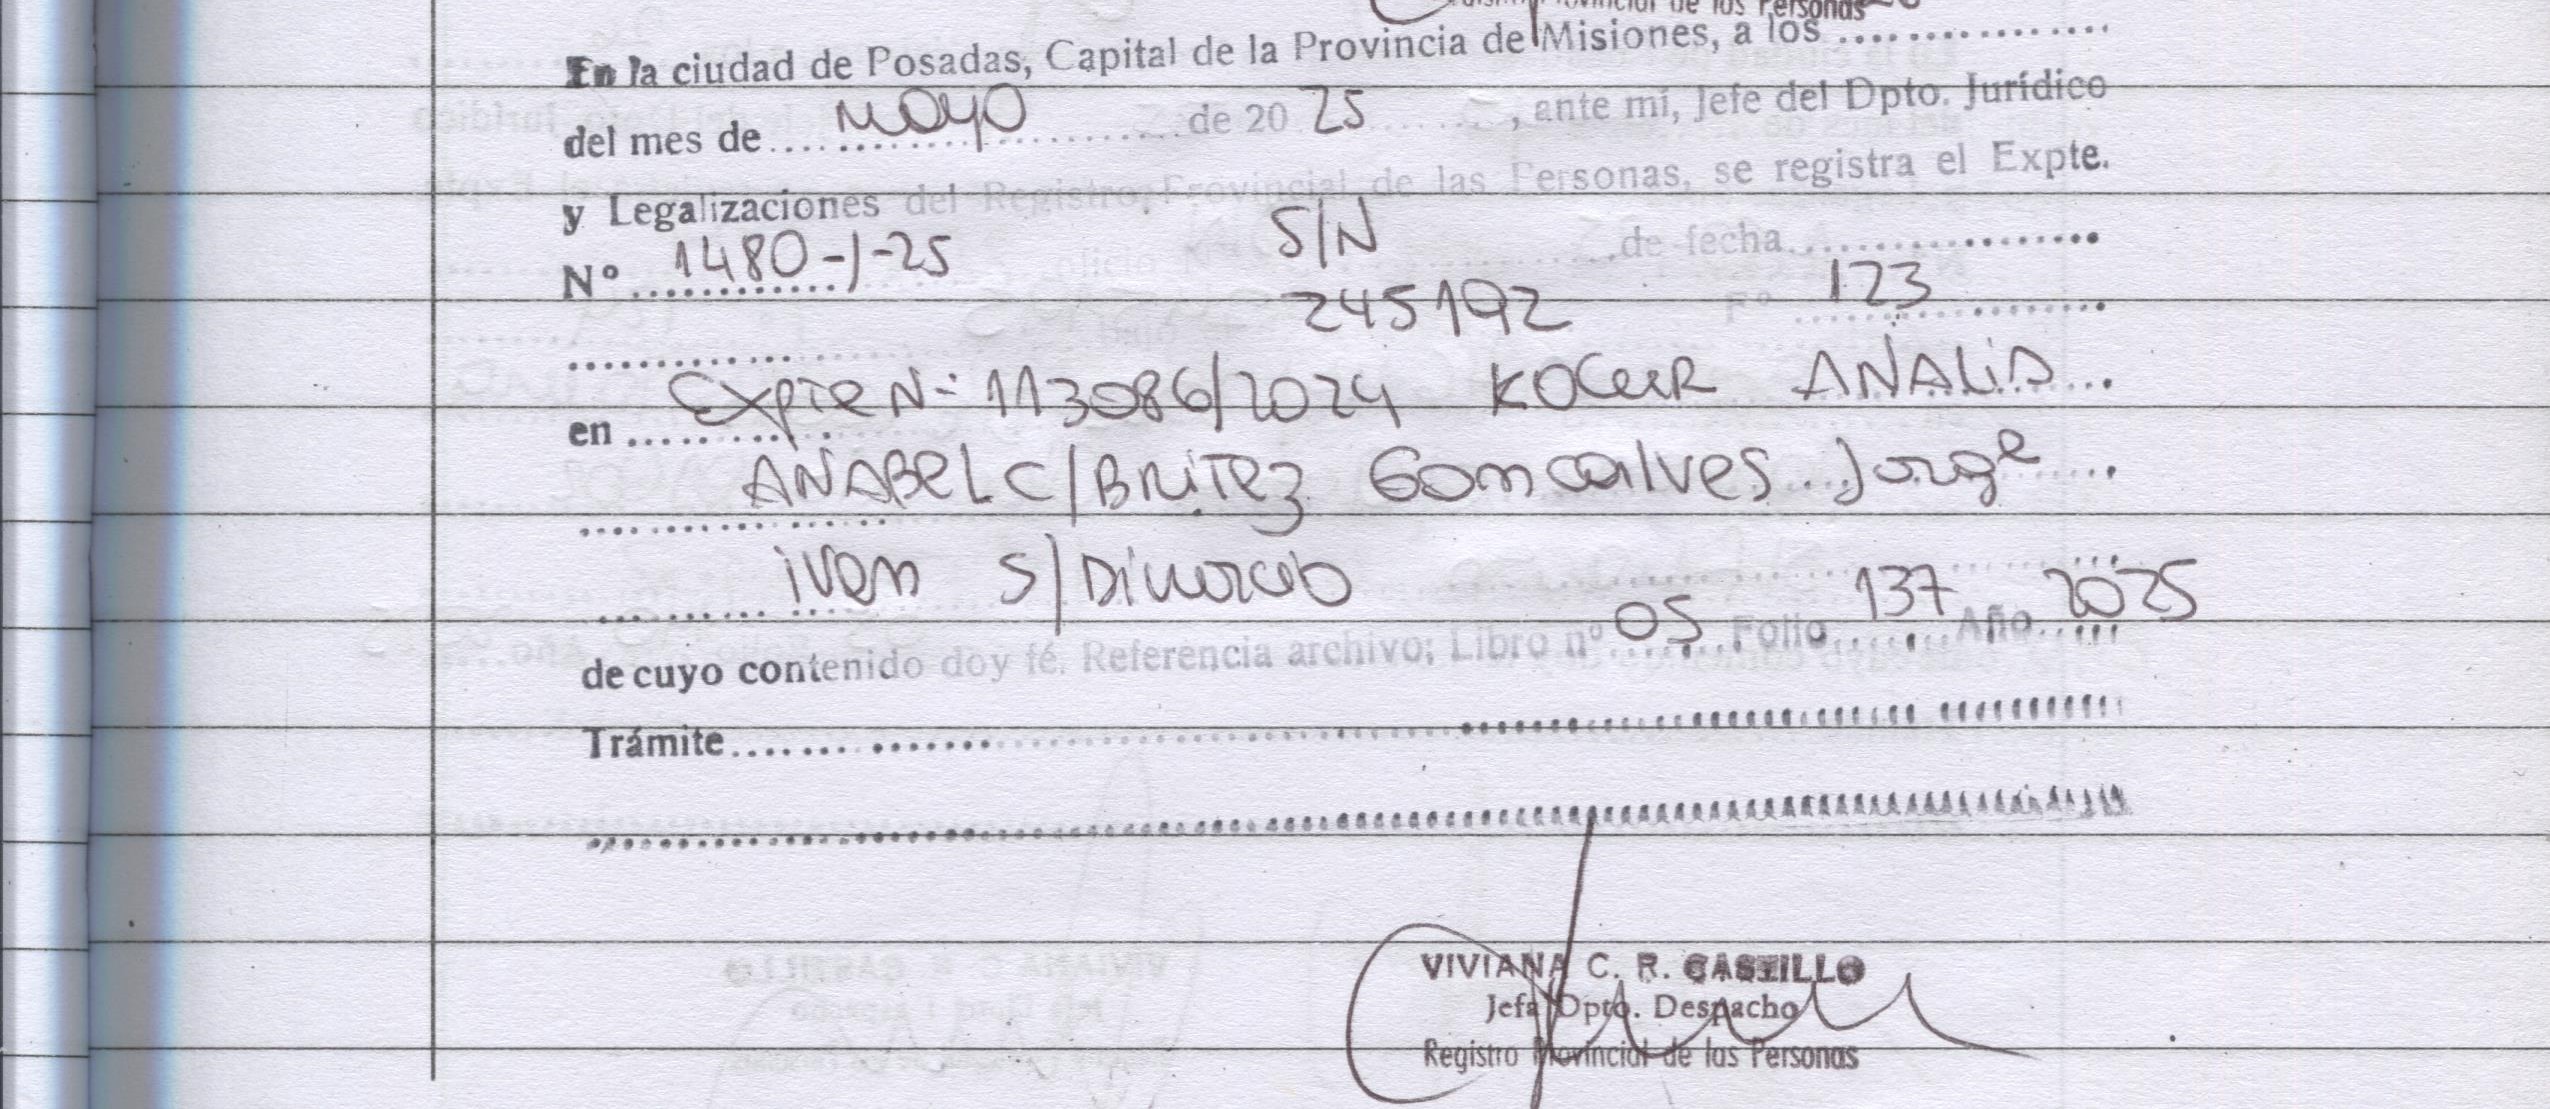 Provincial de las Personas
En la ciudad de Posadas, Capital de la Provincia de Misiones, a los ................
del mes de mayo de 20 25, ante mí, Jefe del Dpto. Jurídico
y Legalizaciones del Registro Provincial de las Personas, se registra el Expte.
Nº 1480-J-25 S/N de fecha
245192 Fº 123
en Expte N= 113086/2024 KOCUR ANALIA
ANABEL C/ BRITEZ Goncalves Jorge
ivan S/ Divorcio
de cuyo contenido doy fé. Referencia archivo; Libro nº 05 Folio 137 Año 2025
Trámite
VIVIANA C. R. CASTILLO
Jefa Dpto. Despacho
Registro Provincial de las Personas